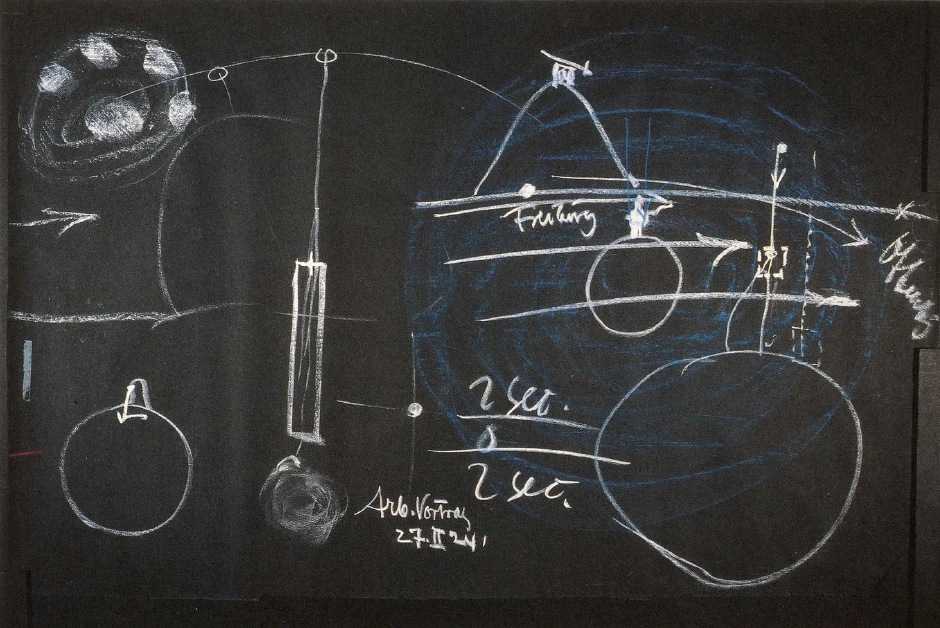 Freiburg
2 sec.
0
2 sec.
Arb. Vortrag
27. II 24.